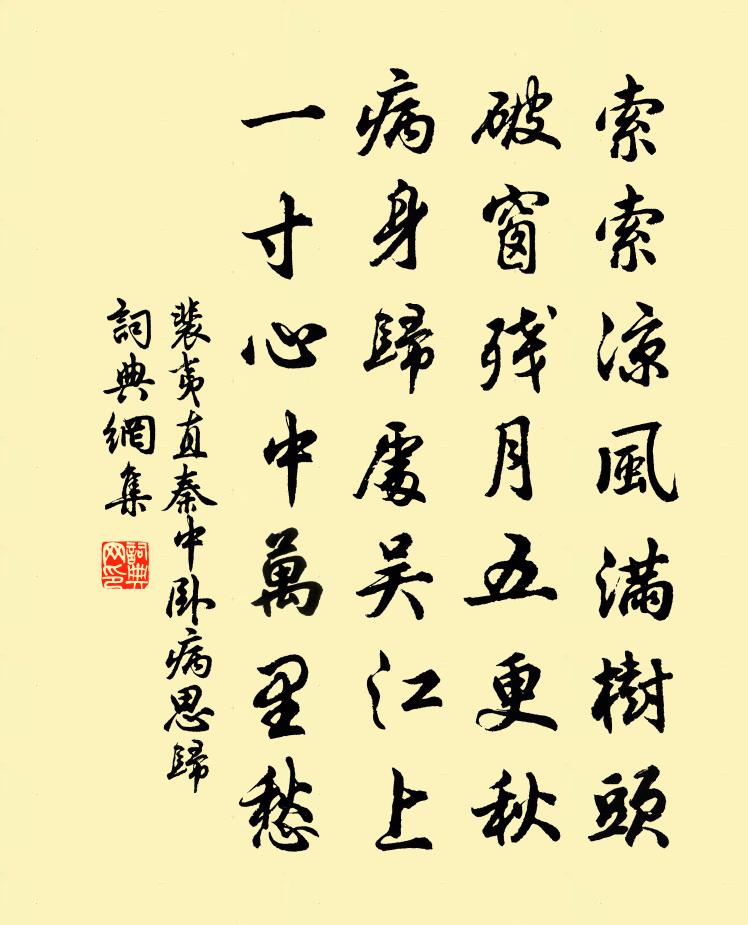 索索涼風滿樹頭
破窗残月五更秋
病身歸處吴江上
一寸心中萬里愁
裴夷直秦中卧病思歸
詞典網集
詞典网印